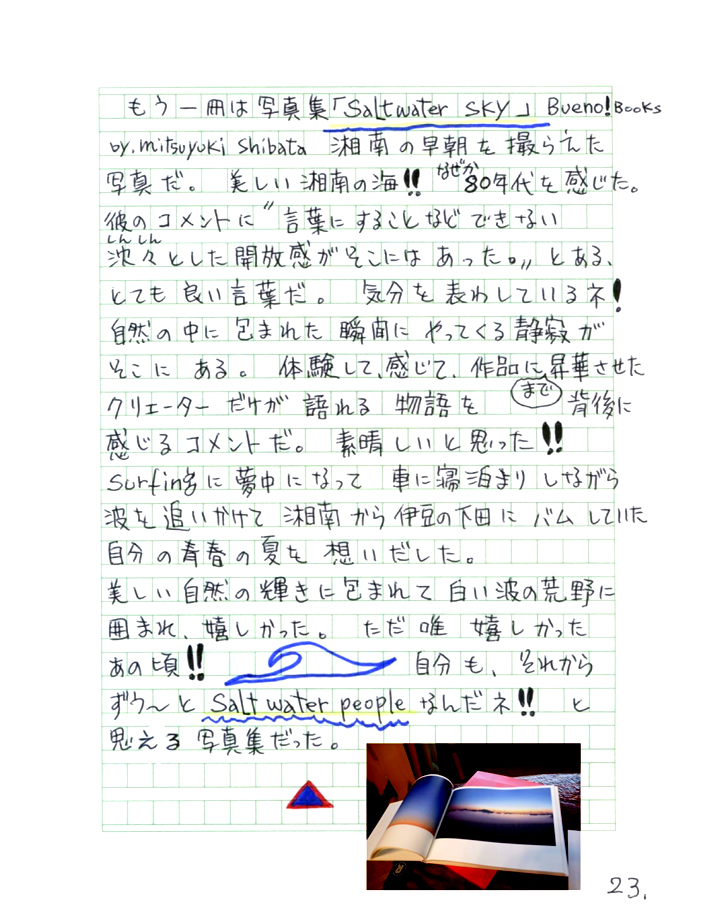 もう一冊は写真集「Saltwater SKY」Bueno!Books
by.mitsuyuki shibata 湘南の早朝を撮らえた
写真だ。美しい湘南の海!!なぜか80年代を感じた。
彼のコメントに〝言葉にすることなどできない
しんしん
沈々とした開放感がそこにはあった。〟とある、
とても良い言葉だ。気分を表わしているネ!
自然の中に包まれた瞬間にやってくる静寂が
そこにある。体験して、感じて、作品にまで昇華させた
クリエーターだけが語れる物語を背後に
感じるコメントだ。素晴しいと思った!!
Surfingに夢中になって車に寝泊まりしながら
波を追いかけて湘南から伊豆の下田にバムしていた
自分の青春の夏を想いだした。
美しい自然の輝きに包まれて白い波の荒野に
囲まれ、嬉しかった。ただ唯嬉しかった
あの頃!!自分も、それから
ずう〜とSalt water peopleなんだネ!!と
思える写真集だった。
23.